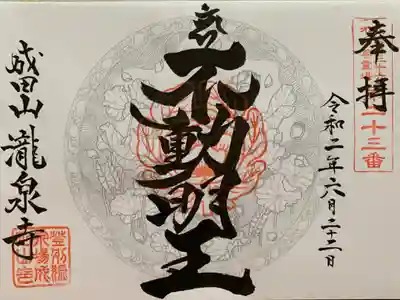 奉拝
二十三番
令和二年六月二十二日
不動明王
成田山瀧泉寺